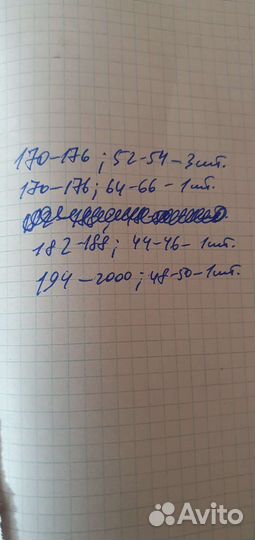 170-176; 52-54-3шт.
170-176; 64-66-1шт.
182-188; 44-46-1шт.
194-2000; 48-50-1шт.
Avito